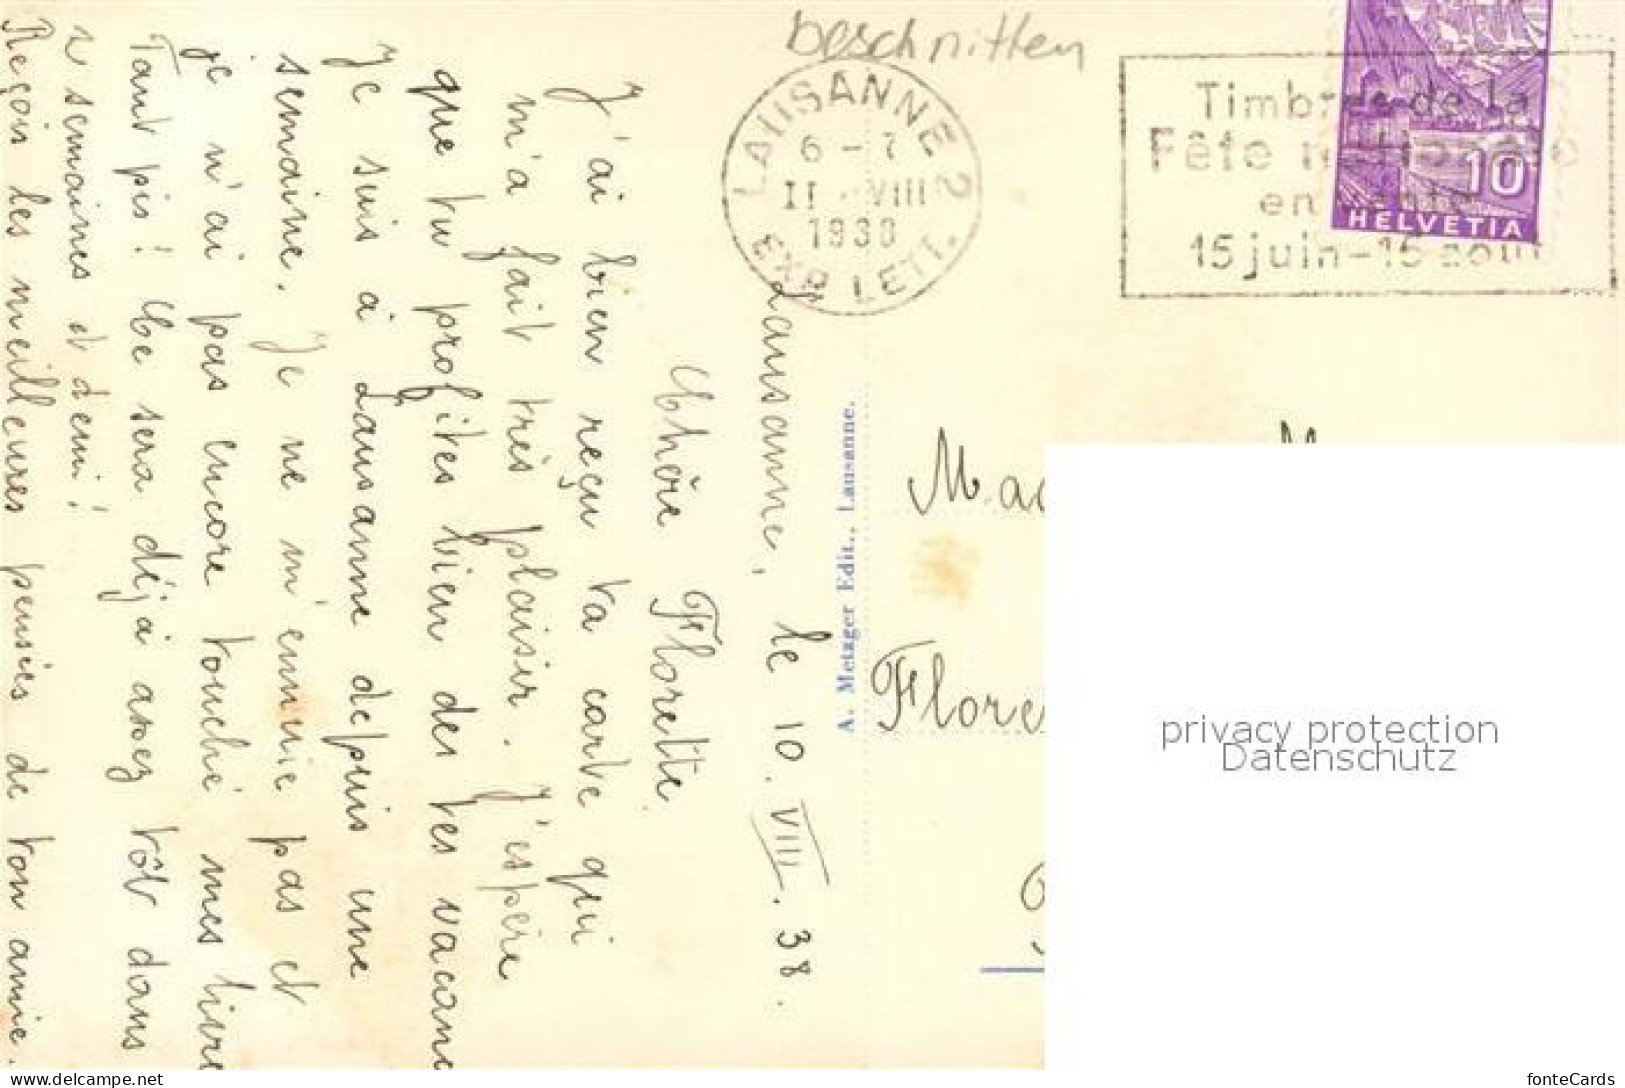 beschnitten
LAUSANNE 2
6-7
11.VIII
1938
EXP. LETT.
Timbres de la
Fête nationale
en vente
15 juin-15 août
10
HELVETIA
Lausanne, le 10.VIII.38.
Chère Florette,
J'ai bien reçu ta carte qui
m'a fait très plaisir. J'espère
que tu profites bien des tes vacanc
Je suis à Lausanne depuis une
semaine. Je ne m'ennuie pas et
je n'ai pas encore touché mes livre
Tant pis! Ce sera déjà assez tôt dans
2 semaines et demi!
Reçois les meilleures pensées de ton amie.
A. Metzger Edit., Lausanne.
Mad
Flore
privacy protection
Datenschutz
www.delcampe.net
fonteCards